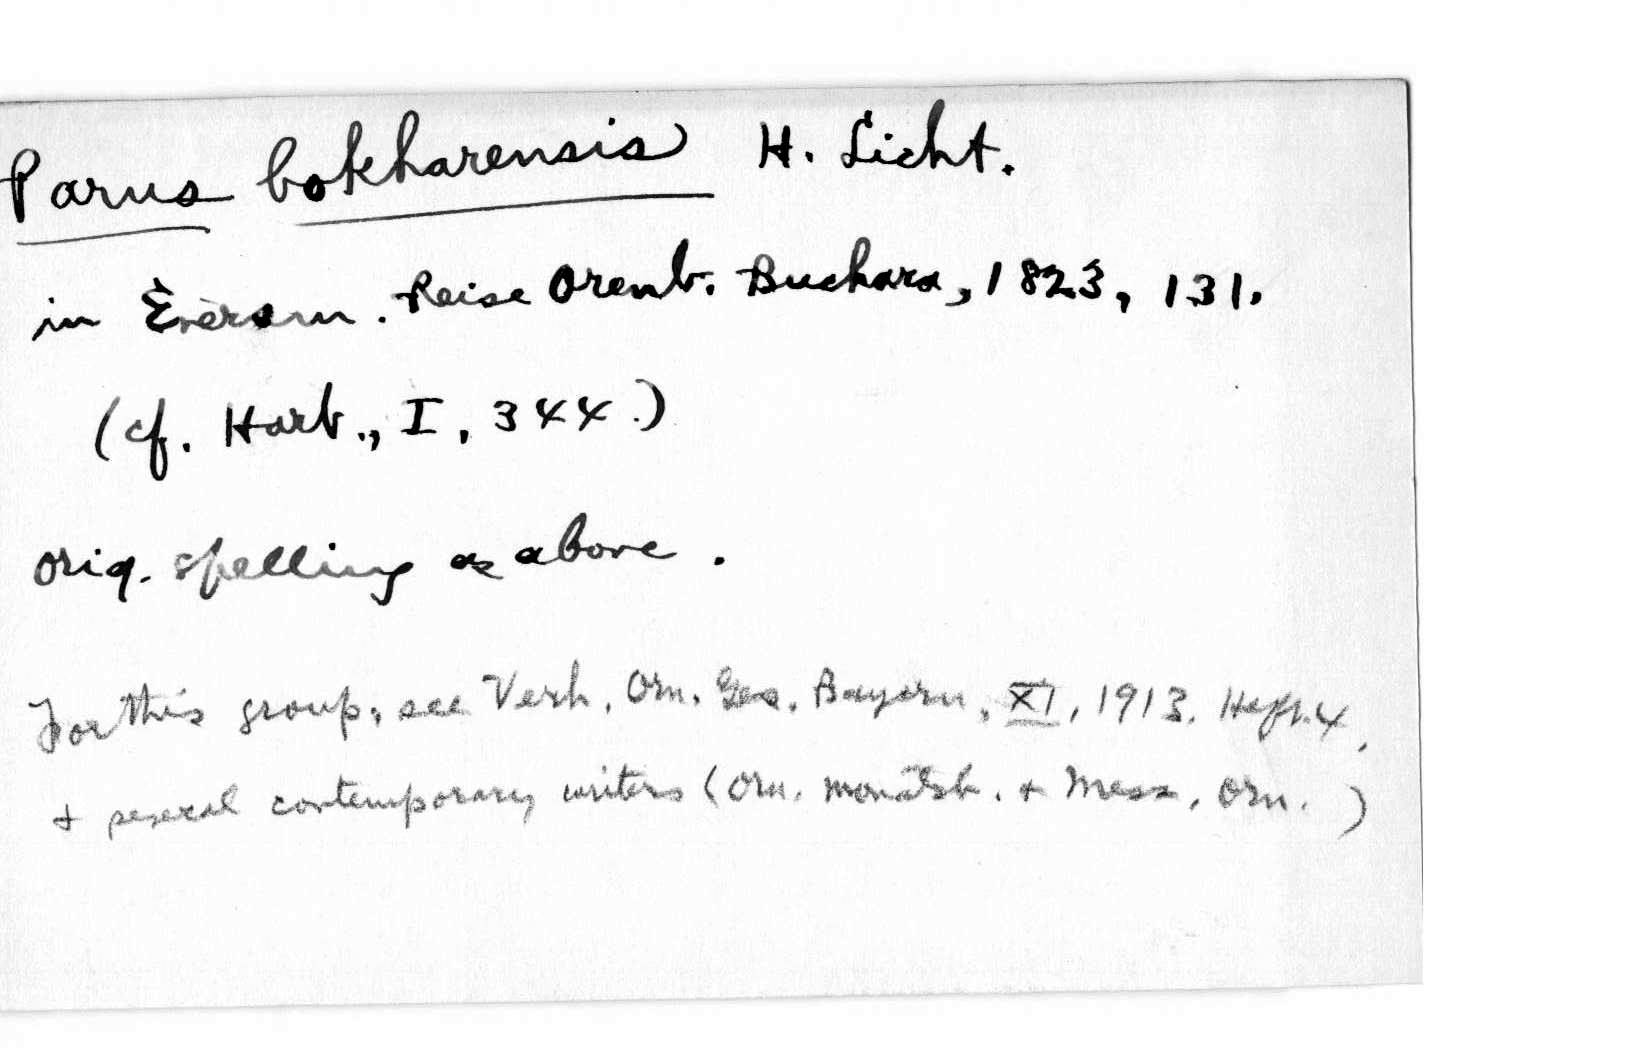 Parus bokharensis H. Licht.
in Eversm. Reise Orenb. Buchara, 1823, 131.
(cf. Hartt., I, 344.)
Orig. spelling as above.
For this group, see Verh. Orn. Ges. Bayern, XI, 1913, Heft. 4,
+ several contemporary writers (Orn. Monatsb. + Mess. Orn.)